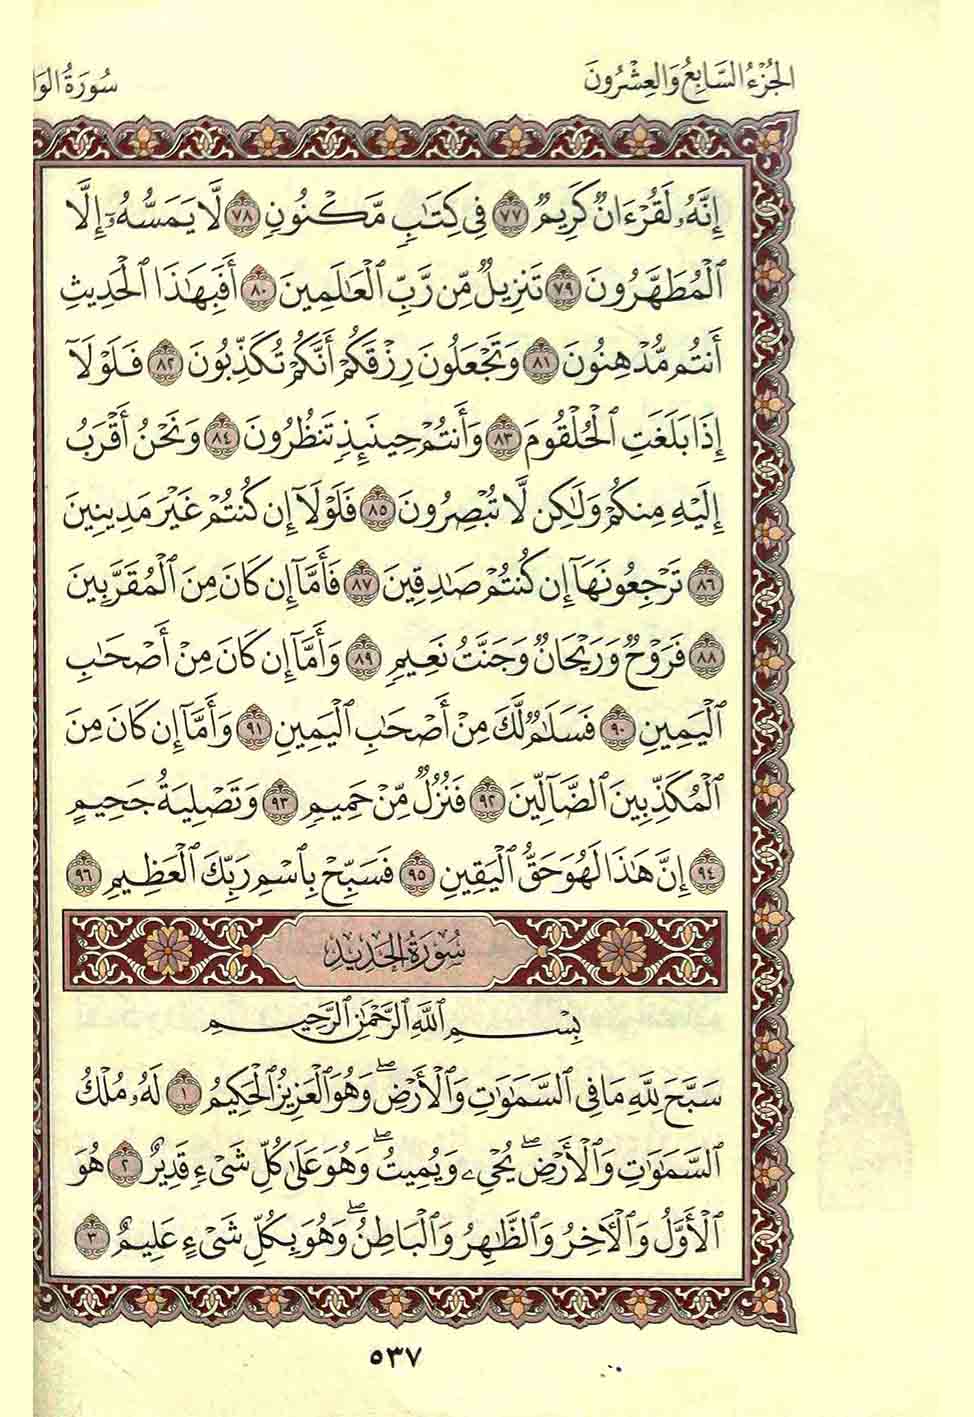 الجُزْءُ السَّابِعُ وَالعِشْرُونَ
سُورَةُ الوَا
إِنَّهُۥ لَقُرْءَانٌ كَرِيمٌ ٧٧ فِي كِتَٰبٍ مَّكْنُونٍ ٧٨ لَّا يَمَسُّهُۥٓ إِلَّا
ٱلْمُطَهَّرُونَ ٧٩ تَنزِيلٌ مِّن رَّبِّ ٱلْعَٰلَمِينَ ٨٠ أَفَبِهَٰذَا ٱلْحَدِيثِ
أَنتُم مُّدْهِنُونَ ٨١ وَتَجْعَلُونَ رِزْقَكُمْ أَنَّكُمْ تُكَذِّبُونَ ٨٢ فَلَوْلَآ
إِذَا بَلَغَتِ ٱلْحُلْقُومَ ٨٣ وَأَنتُمْ حِينَئِذٍ تَنظُرُونَ ٨٤ وَنَحْنُ أَقْرَبُ
إِلَيْهِ مِنكُمْ وَلَٰكِن لَّا تُبْصِرُونَ ٨٥ فَلَوْلَآ إِن كُنتُمْ غَيْرَ مَدِينِينَ
٨٦ تَرْجِعُونَهَآ إِن كُنتُمْ صَٰدِقِينَ ٨٧ فَأَمَّآ إِن كَانَ مِنَ ٱلْمُقَرَّبِينَ
٨٨ فَرَوْحٌ وَرَيْحَانٌ وَجَنَّتُ نَعِيمٍ ٨٩ وَأَمَّآ إِن كَانَ مِنْ أَصْحَٰبِ
ٱلْيَمِينِ ٩٠ فَسَلَٰمٌ لَّكَ مِنْ أَصْحَٰبِ ٱلْيَمِينِ ٩١ وَأَمَّآ إِن كَانَ مِنَ
ٱلْمُكَذِّبِينَ ٱلضَّآلِّينَ ٩٢ فَنُزُلٌ مِّنْ حَمِيمٍ ٩٣ وَتَصْلِيَةُ جَحِيمٍ
٩٤ إِنَّ هَٰذَا لَهُوَ حَقُّ ٱلْيَقِينِ ٩٥ فَسَبِّحْ بِٱسْمِ رَبِّكَ ٱلْعَظِيمِ ٩٦
سُورَةُ الحَدِيدِ
بِسْمِ ٱللَّهِ ٱلرَّحْمَٰنِ ٱلرَّحِيمِ
سَبَّحَ لِلَّهِ مَا فِي ٱلسَّمَٰوَٰتِ وَٱلْأَرْضِۖ وَهُوَ ٱلْعَزِيزُ ٱلْحَكِيمُ ١ لَهُۥ مُلْكُ
ٱلسَّمَٰوَٰتِ وَٱلْأَرْضِۖ يُحْيِۦ وَيُمِيتُۖ وَهُوَ عَلَىٰ كُلِّ شَيْءٍ قَدِيرٌ ٢ هُوَ
ٱلْأَوَّلُ وَٱلْءَاخِرُ وَٱلظَّٰهِرُ وَٱلْبَاطِنُۖ وَهُوَ بِكُلِّ شَيْءٍ عَلِيمٌ ٣
٥٣٧